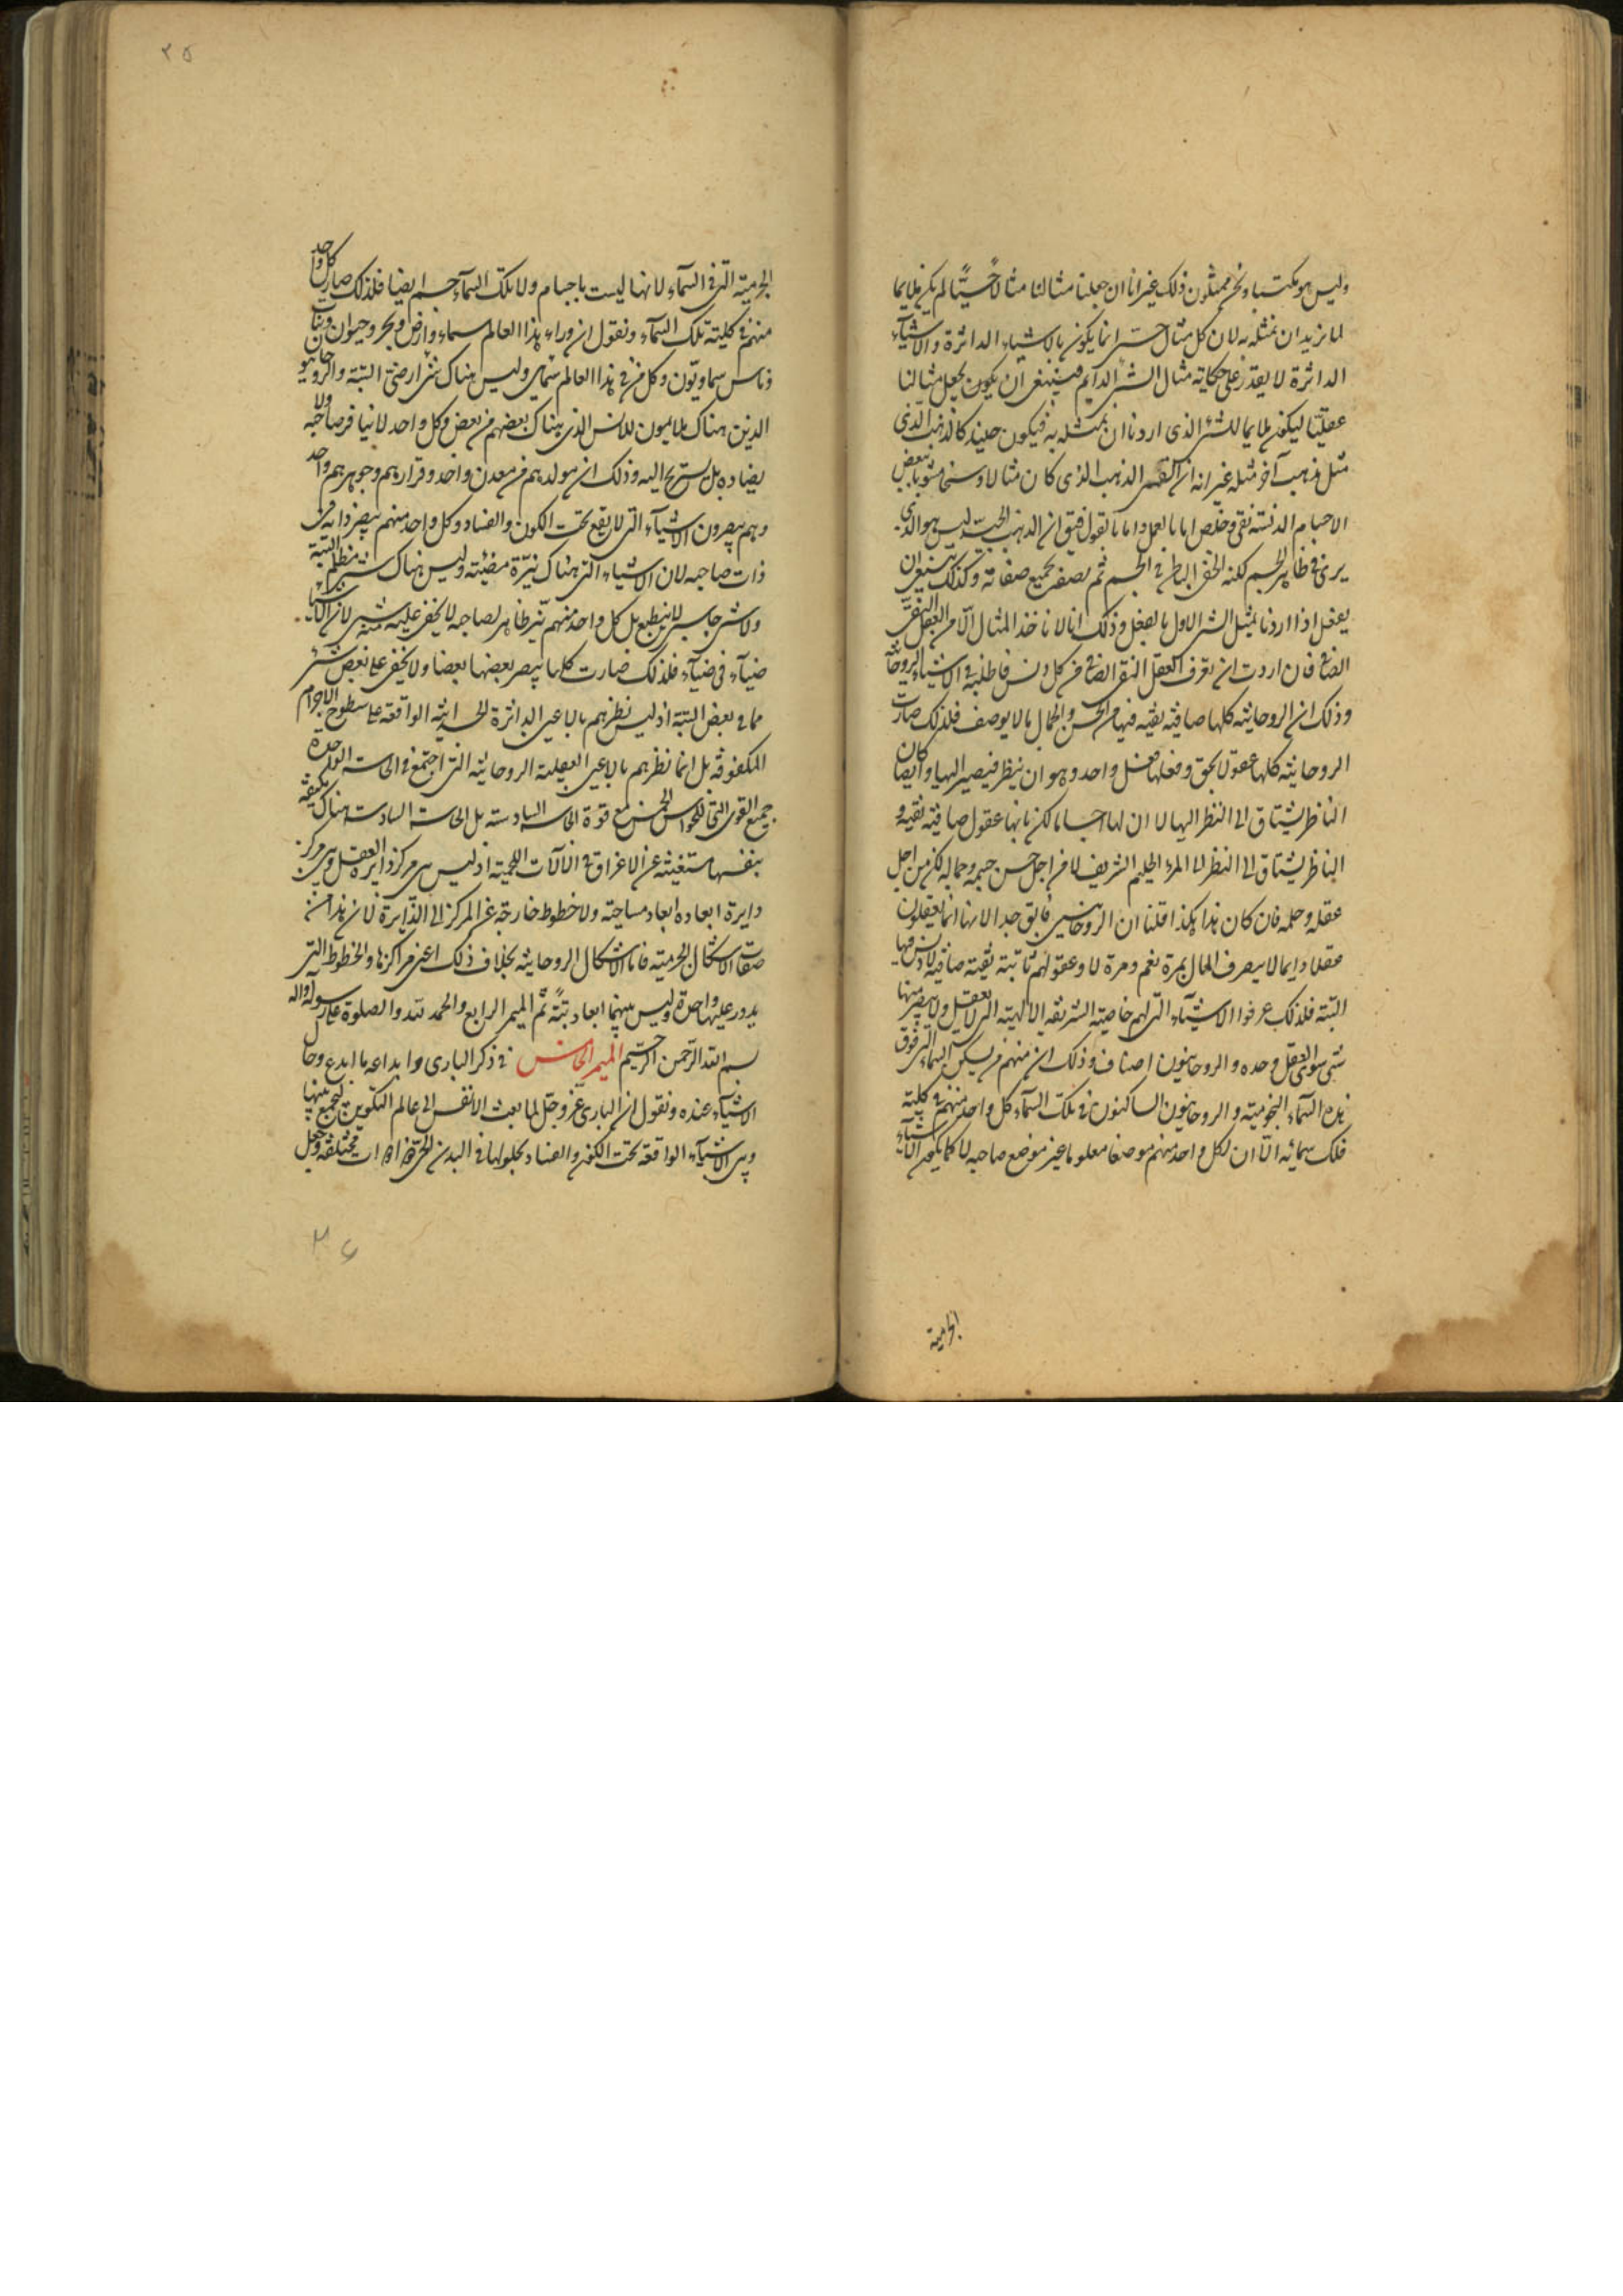 وليس هو مكتسبا ونحن ممثلون ذلك غير انا ان جعلنا مثالنا مثالا حسيّا لم يكن ملايما
لما نريد ان نمثله به لان كل مثال حسى انما يكون بالاشياء الداثرة والاشياء
الداثرة لا يقدر على حكاية مثال الشئ الدايم فينبغى ان يكون يجعل مثالنا
عقليّا ليكون ملايما للشئ الذى اردنا ان نمثله به فيكون حينئذ كالذهب الذى
مثل بذهب آخر مثله غير انه ان الفى الذهب الذى كان مثالا وسخا مشوبا ببعض
الاجسام الدنسة نقى وخلص اما بالعمل واما بالقول فيق ان الذهب الجيّد ليس هو الذى
يرى فى ظاهر الجسم لكنه الخفى الباطن فى الجسم ثم نصفه بجميع صفاته وكذلك ينبغى ان
يفعل اذا اردنا تمثيل الشئ الاول بالعقل وذلك انا لا ناخذ المثال الّا من العقل النقىّ
الصافى فان اردت ان تعرف العقل النقى الصافى من كل دنس فاطلبه فى الاشياء الروحانية
وذلك ان الروحانية كلها صافية نقية فيها من الحسن والجمال ما لا يوصف فلذلك صارت
الروحانية كلها عقولا بحق وفعلها فعل واحد وهو ان ينظر فيصير اليها وايضا كان
الناظر يشتاق الى النظر اليها لا ان لها اجساما لكن بانها عقول صافية نقية و
الناظر يشتاق الى النظر الى المرء الحليم الشريف لا من اجل حسن جسمه وجماله لكن من اجل
عقله وحلمه فان كان هذا هكذا قلنا ان الروحانيين فايق جدا لانها انما يعقلون
عقلا دايما لا يصرف الحال بمرة نعم ومرة لا وعقولهم ثابتة نقية صافية لا دنس فيها
البتة فلذلك عرفوا الاشياء التى لهم خاصيّة الشريفة الالهية التى لا يعقل ولا يبصر منها
شى سوى العقل وحده والروحانيون اصناف وذلك ان منهم من يسكن السماء التى فوق
هذه السماء النجومية والروحانيون الساكنون فى تلك السماء كل واحد منهم فى كلية
فلك سمائه الّا ان لكل واحد منهم موضعا معلوما غير موضع صاحبه لا كما يكون الاشياء
الجرمية
الجرمية التى فى السماء لانها ليست باجسام ولا تلك السماء جسم ايضا فلذلك صار كل واحد
منهم فى كلية تلك السماء ونقول ان وراء هذا العالم سماء وارض وبحر وحيوان ونبات
وناس سماويّون وكل من فى هذا العالم سمائى وليس هناك شئ ارضى البتة والروحانيون
الذين هناك ملايمون للانس الذى هناك بعضهم من بعض وكل واحد لا ينافر صاحبه ولا
يضاده بل يستريح اليه وذلك ان مولدهم من معدن واحد وقرارهم وجوهرهم واحد
وهم يبصرون الاشياء التى لا يقع تحت الكون والفساد وكل واحد منهم يبصر ذاته فى
ذات صاحبه لان الاشياء التى هناك نيّرة مضيئة وليس هناك شئ مظلم البتة
ولا شئ جاسى لا ينطبع بل كل واحد منهم نيّر ظاهر لصاحبه لا يخفى عليه منه شئ لان الاشياء
ضياء فى ضياء فلذلك صارت كلها يبصر بعضها بعضا ولا يخفى على بعض شئ
مما فى بعض البتة اذ ليس نظرهم بالاعين الداثرة الجسدانية الواقعة على سطوح الاجرام
المكفوفة بل انما نظرهم بالاعين العقلية الروحانية التى اجتمع فى الحاسة الواحدة
جميع القوى التى للحواس الخمس مع قوة الحاسة السادسة بل الحاسة السادسة هناك مكتفية
بنفسها مستغنية عن الاغراق فى الآلات اللحمية اذ ليس بين مركز دايرة العقل وبين مركز
دايرة ابعاده ابعاد مساحية ولا خطوط خارجة عن المركز الى الدايرة لان هذا من
صفات الاشكال الجرمية فاما الاشكال الروحانية بخلاف ذلك اعنى مراكزها والخطوط التى
يدور عليها واحدة وليس بينهما ابعاد بتةً تمّ الميمر الرابع والحمد لله والصلوة على رسوله وآله
بسم الله الرحمن الرحيم الميمر الخامس فى ذكر البارى وابداعه ما ابدع وحال
الاشياء عنده ونقول ان البارى عزّ وجلّ لما بعث الانفس الى عالم التكوين ليجمع بينها
وبين الاشياء الواقعة تحت الكون والفساد بحلولها فى البدن مختلفة وجعل